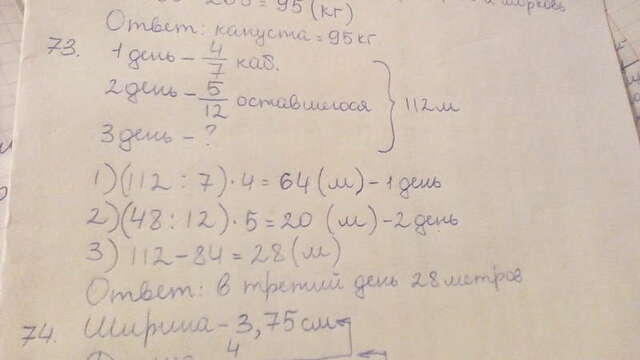 200 = 95 (кг)
Ответ: капуста = 95 кг.
73.
1 день - 4/7 каб.
2 день - 5/12 оставшегося } 112 м
3 день - ?
1) (112 : 7) · 4 = 64 (м) - 1 день
2) (48 : 12) · 5 = 20 (м) - 2 день
3) 112 - 84 = 28 (м)
Ответ: в третий день 28 метров
74. Ширина - 3,75 см
4